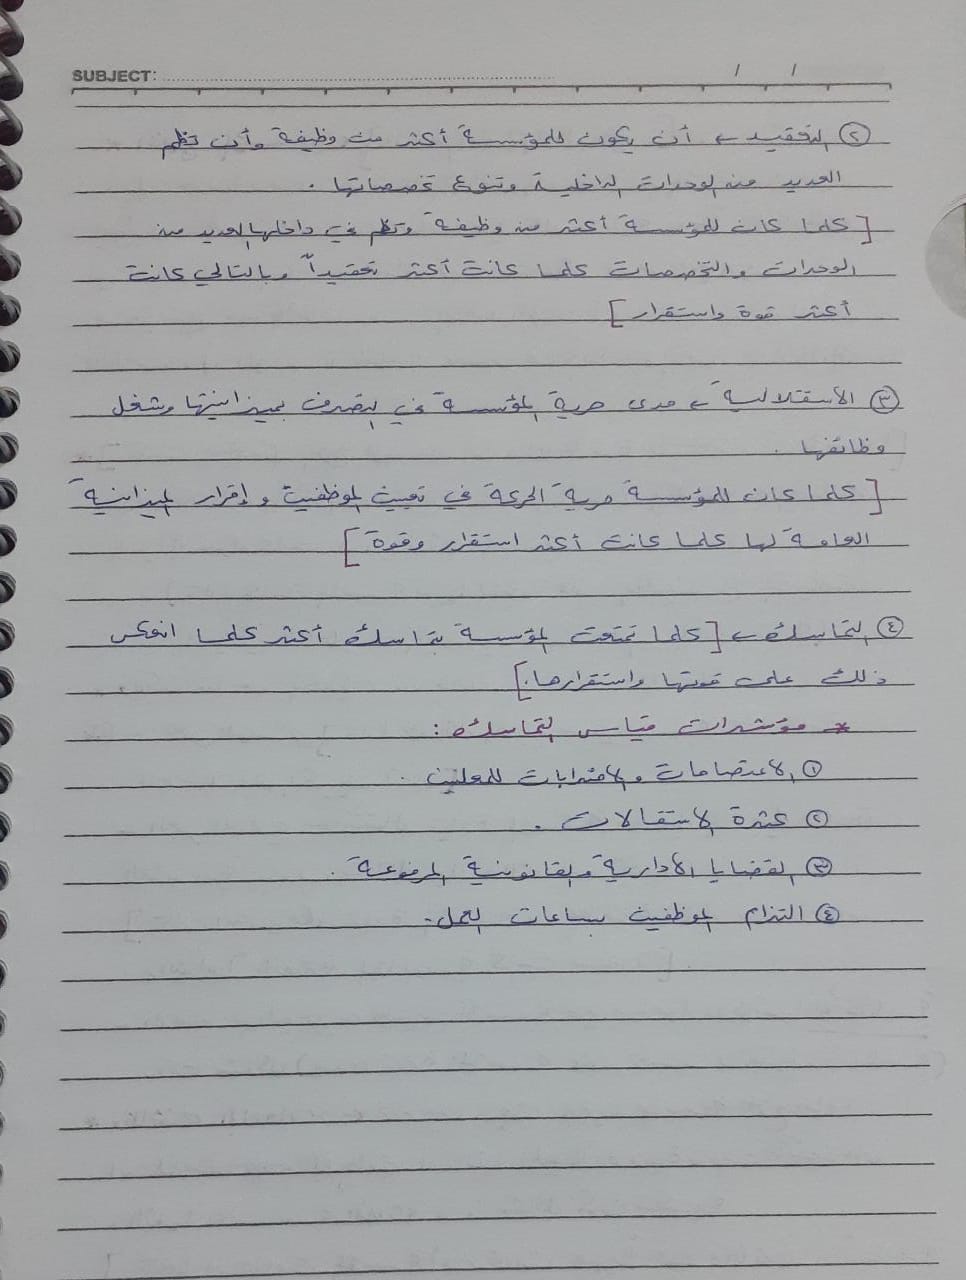 SUBJECT: / /
② التعقيد ← أن يكون للمؤسسة أكثر من وظيفة وأن تظم
العديد من الوحدات الداخلية وتنوع تخصصاتها .
[ كلما كان للمؤسسة أكثر من وظيفة وتظم في داخلها العديد من
الوحدات والتخصصات كلما كانت أكثر تعقيداً وبالتالي كانت
أكثر قوة واستقرار ]
③ الأستقلالية ← مدى حرية المؤسسة في التصرف بميزانيتها وشغل
وظائفها .
[ كلما كان للمؤسسة حرية الحركة في تعيين الموظفين و إقرار الميزانية
العامة لها كلما كانت أكثر استقرار وقوة ]
④ التماسك ← [ كلما تمتعت المؤسسة بتماسك أكثر كلما انعكس
ذلك على قوتها واستقرارها . ]
* مؤشرات قياس التماسك :
① الاعتصامات والاضرابات للمعلنين .
② كثرة الاستقالات .
③ القضايا الأدارية والقانونية المرفوعة .
④ التزام الموظفين بساعات العمل .